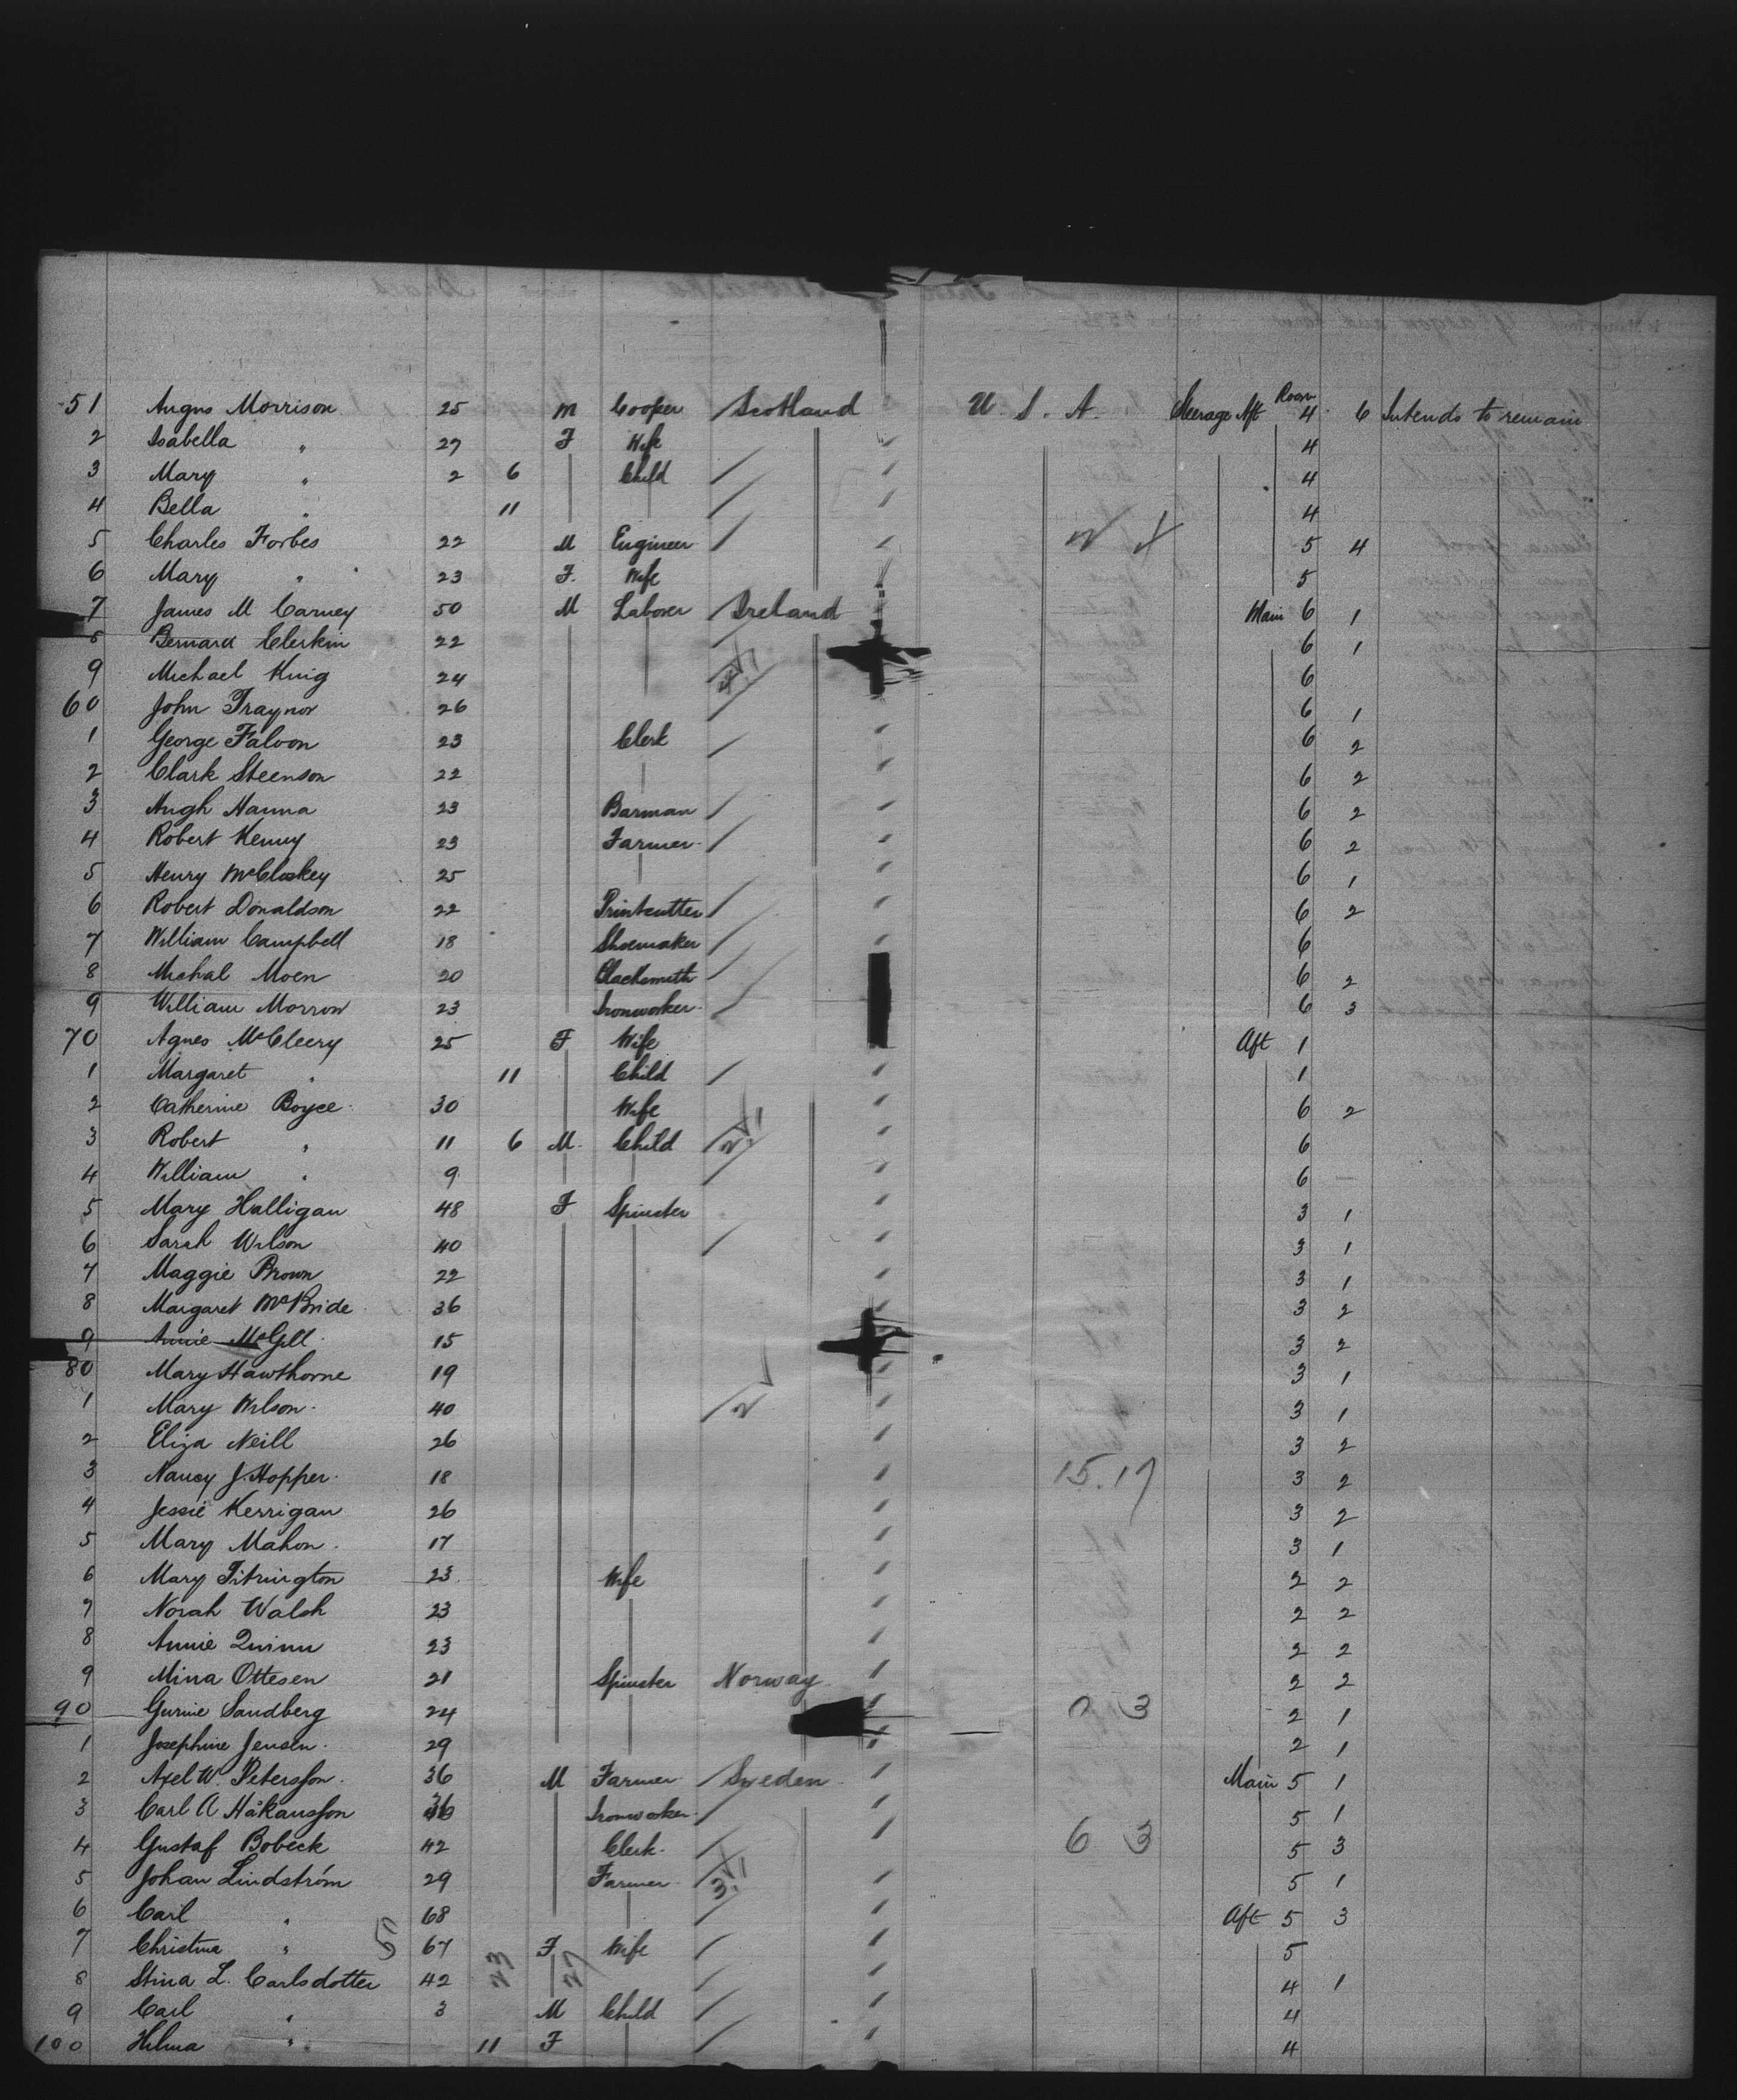 51 Angus Morrison 25 M Cooper Scotland U. S. A. Steerage Aft Room 4 6 Intends to remain
2 Isabella " 27 F Wife 4
3 Mary " 2 6 Child 4
4 Bella " 11 4
5 Charles Forbes 22 M Engineer 5 4
6 Mary " 23 F. Wife 5
7 James M Carney 50 M Laborer Ireland Main 6 1
8 Bernard Clerkin 22 6 1
9 Michael King 24 6
60 John Traynor 26 6 1
1 George Faloon 23 Clerk 6 2
2 Clark Steenson 22 6 2
3 Hugh Hanna 23 Barman 6 2
4 Robert Kenny 23 Farmer 6 2
5 Henry McCloskey 25 6 1
6 Robert Donaldson 22 Printcutter 6 2
7 William Campbell 18 Shoemaker 6
8 Michal Moen 20 Blacksmith 6 2
9 William Morrow 23 Ironworker 6 3
70 Agnes McCleery 25 F Wife Aft 1
1 Margaret " 11 Child 1
2 Catherine Boyce 30 Wife 6 2
3 Robert " 11 6 M. Child 6
4 William " 9 6
5 Mary Halligan 48 F Spinster 3 1
6 Sarah Wilson 40 3 1
7 Maggie Brown 22 3 1
8 Margaret McBride 36 3 2
9 Annie McGill 15 3 2
80 Mary Hawthorne 19 3 1
1 Mary Wilson 40 2 3 1
2 Eliza Neill 26 3 2
3 Nancy J. Hopper 18 15.17 3 2
4 Jessie Kerrigan 26 3 2
5 Mary Mahon 17 3 1
6 Mary 23 Wife 2 2
7 Norah Walsh 23 2 2
8 Annie Quinn 23 2 2
9 Mina Ottesen 21 Spinster Norway 2 2
90 Gurine Sandberg 24 3 2 1
1 Josephine Jensen 29 2 1
2 Axel W. Petersson 36 M Farmer Sweden Main 5 1
3 Carl A Håkansson 36 Ironworker 5 1
4 Gustaf Bobeck 42 Clerk 6 3 5 3
5 Johan Lindström 29 Farmer 5 1
6 Carl " 68 Aft 5 3
7 Christina " 5 67 23 F 27 Wife 5
8 Stina L. Carlsdotter 42 4 1
9 Carl " 3 M Child 4
100 Hilma " 11 F 4